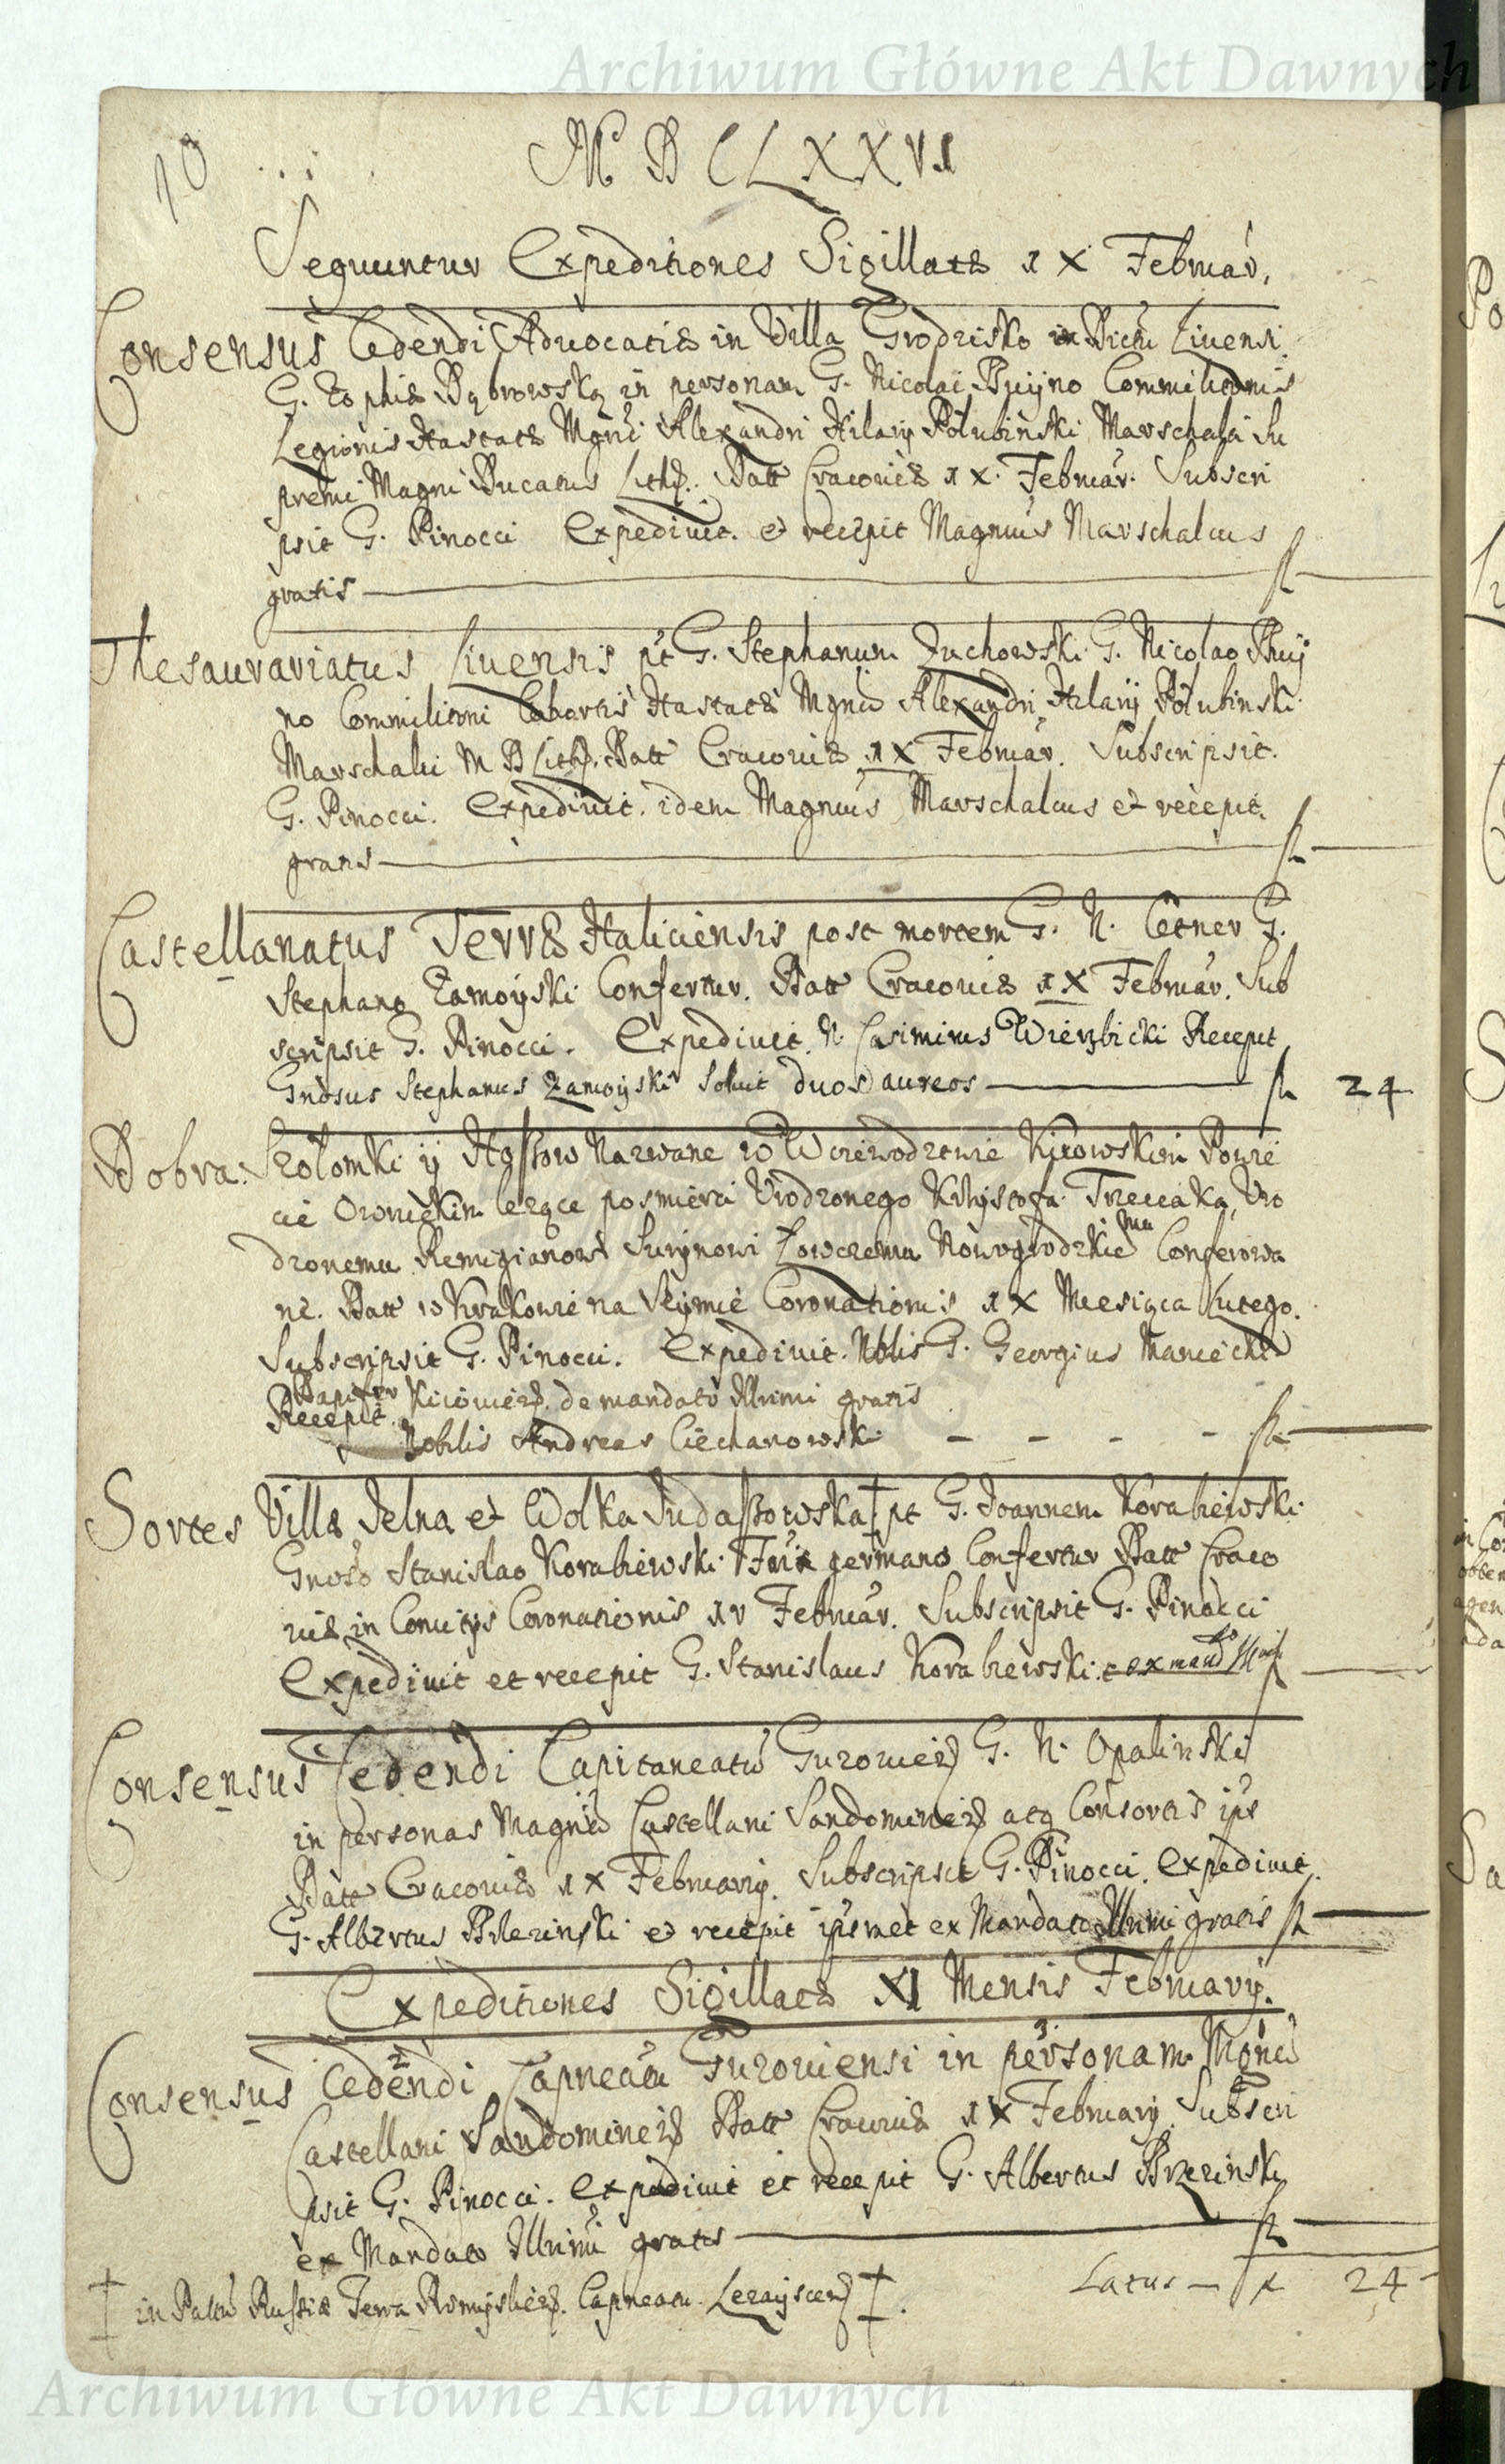 Archiwum Główne Akt Dawnych
10
M D C L X X V I
Sequuntur Expeditiones Sigillatæ IX Februar.
Consensus Cedendi Advocatiæ in Villa Grodzisko in Dictu Liuensi
G. Zophiæ Dąbrowską in personam G. Nicolai Puÿno Commilitonis
Legionis Hastatæ Mgnci Alexandri Hilarij Połubinski Marschalci Su
premi Magni Ducatus Lith. Datt Cracoviæ IX. Februar. Subscri
psit G. Pinocci Expediuit. et recepit Magnus Marschalcus
gratis fl
Thesaurariatus Liuensis pt G. Stephanum Zuchowski G. Nicolao Puij
no Commilitoni Cohortis Hastatæ Mgnci Alexandri Hilarij Połubinski
Marschalci M D Lith. Datt Cracoviæ IX Februar. Subscripsit.
G. Pinocci. Expediuit. idem Magnus Marschalcus et recepit.
gratis fl
Castellanatus Terræ Haliciensis post mortem G. N. Cetner G.
Stephano Zamoÿski Confertur. Datt Cracoviæ IX Februar. Sub
scripsit G. Pinocci. Expediuit. N. Casimirus Wierzbicki Recepit
Gnosus Stephanus Zamoÿski soluit duos aureos fl 24
Dobra. Szołomki ÿ Hoszow Nazwane w Woiewodztwie Kijowskim Powie
cie Owruckim lezące posmierci Urodzonego Krzysztofa Trzeciaka, Uro
dzonemu Remigianowi Surÿnowi Łowczemu Nowogrodzkie mu Conferowa
ne. Datt w Krakowie na Seÿmie Coronationis IX Miesiąca Lutego.
Subscripsit G. Pinocci. Expediuit. Nblis G. Georgius Maniecki
Dapifer Kiiouien. de mandato Illrimi gratis
Recepit. Nobilis Andreas Ciechanowski - - - - fl
Sortes Villæ Jelna et Wolka Judaszowska † pt G. Joannem Korabiewski
Gnoso Stanislao Korabiewski Fri germano Confertur Datt Craco
viæ in Comitijs Coronationis IV Februar. Subscripsit G. Pinocci
Expediuit et recepit G. Stanislaus Korabiewski. ex mand to fl
Consensus Cedendi Capitaneatu Gurouien G. N. Opalinski
in personas Magnci Castellani Sandomirien atq Consortis ips
Datt Cracoviæ IX Februarij. Subscripsit G. Pinocci. Expediuit.
G. Albertus Brzezinski et recepit ipsemet ex Mandato Illrimi gratis fl
Expeditiones Sigillatæ XI Mensis Februarij.
Consensus Cedendi Capneatu Gurouiensi in personam Mgnci
Castellani Sandomirien Datt Cracouiæ IX Februarij Subscri
psit G. Pinocci. Expediuit et recepit G. Albertus Brzezinski
ex Mandato Illrimi gratis fl
Latus — fl 24
† in Palatu Russiæ Terra Premÿslien. Capneatu Lezaÿscen †.
Archiwum Główne Akt Dawnych